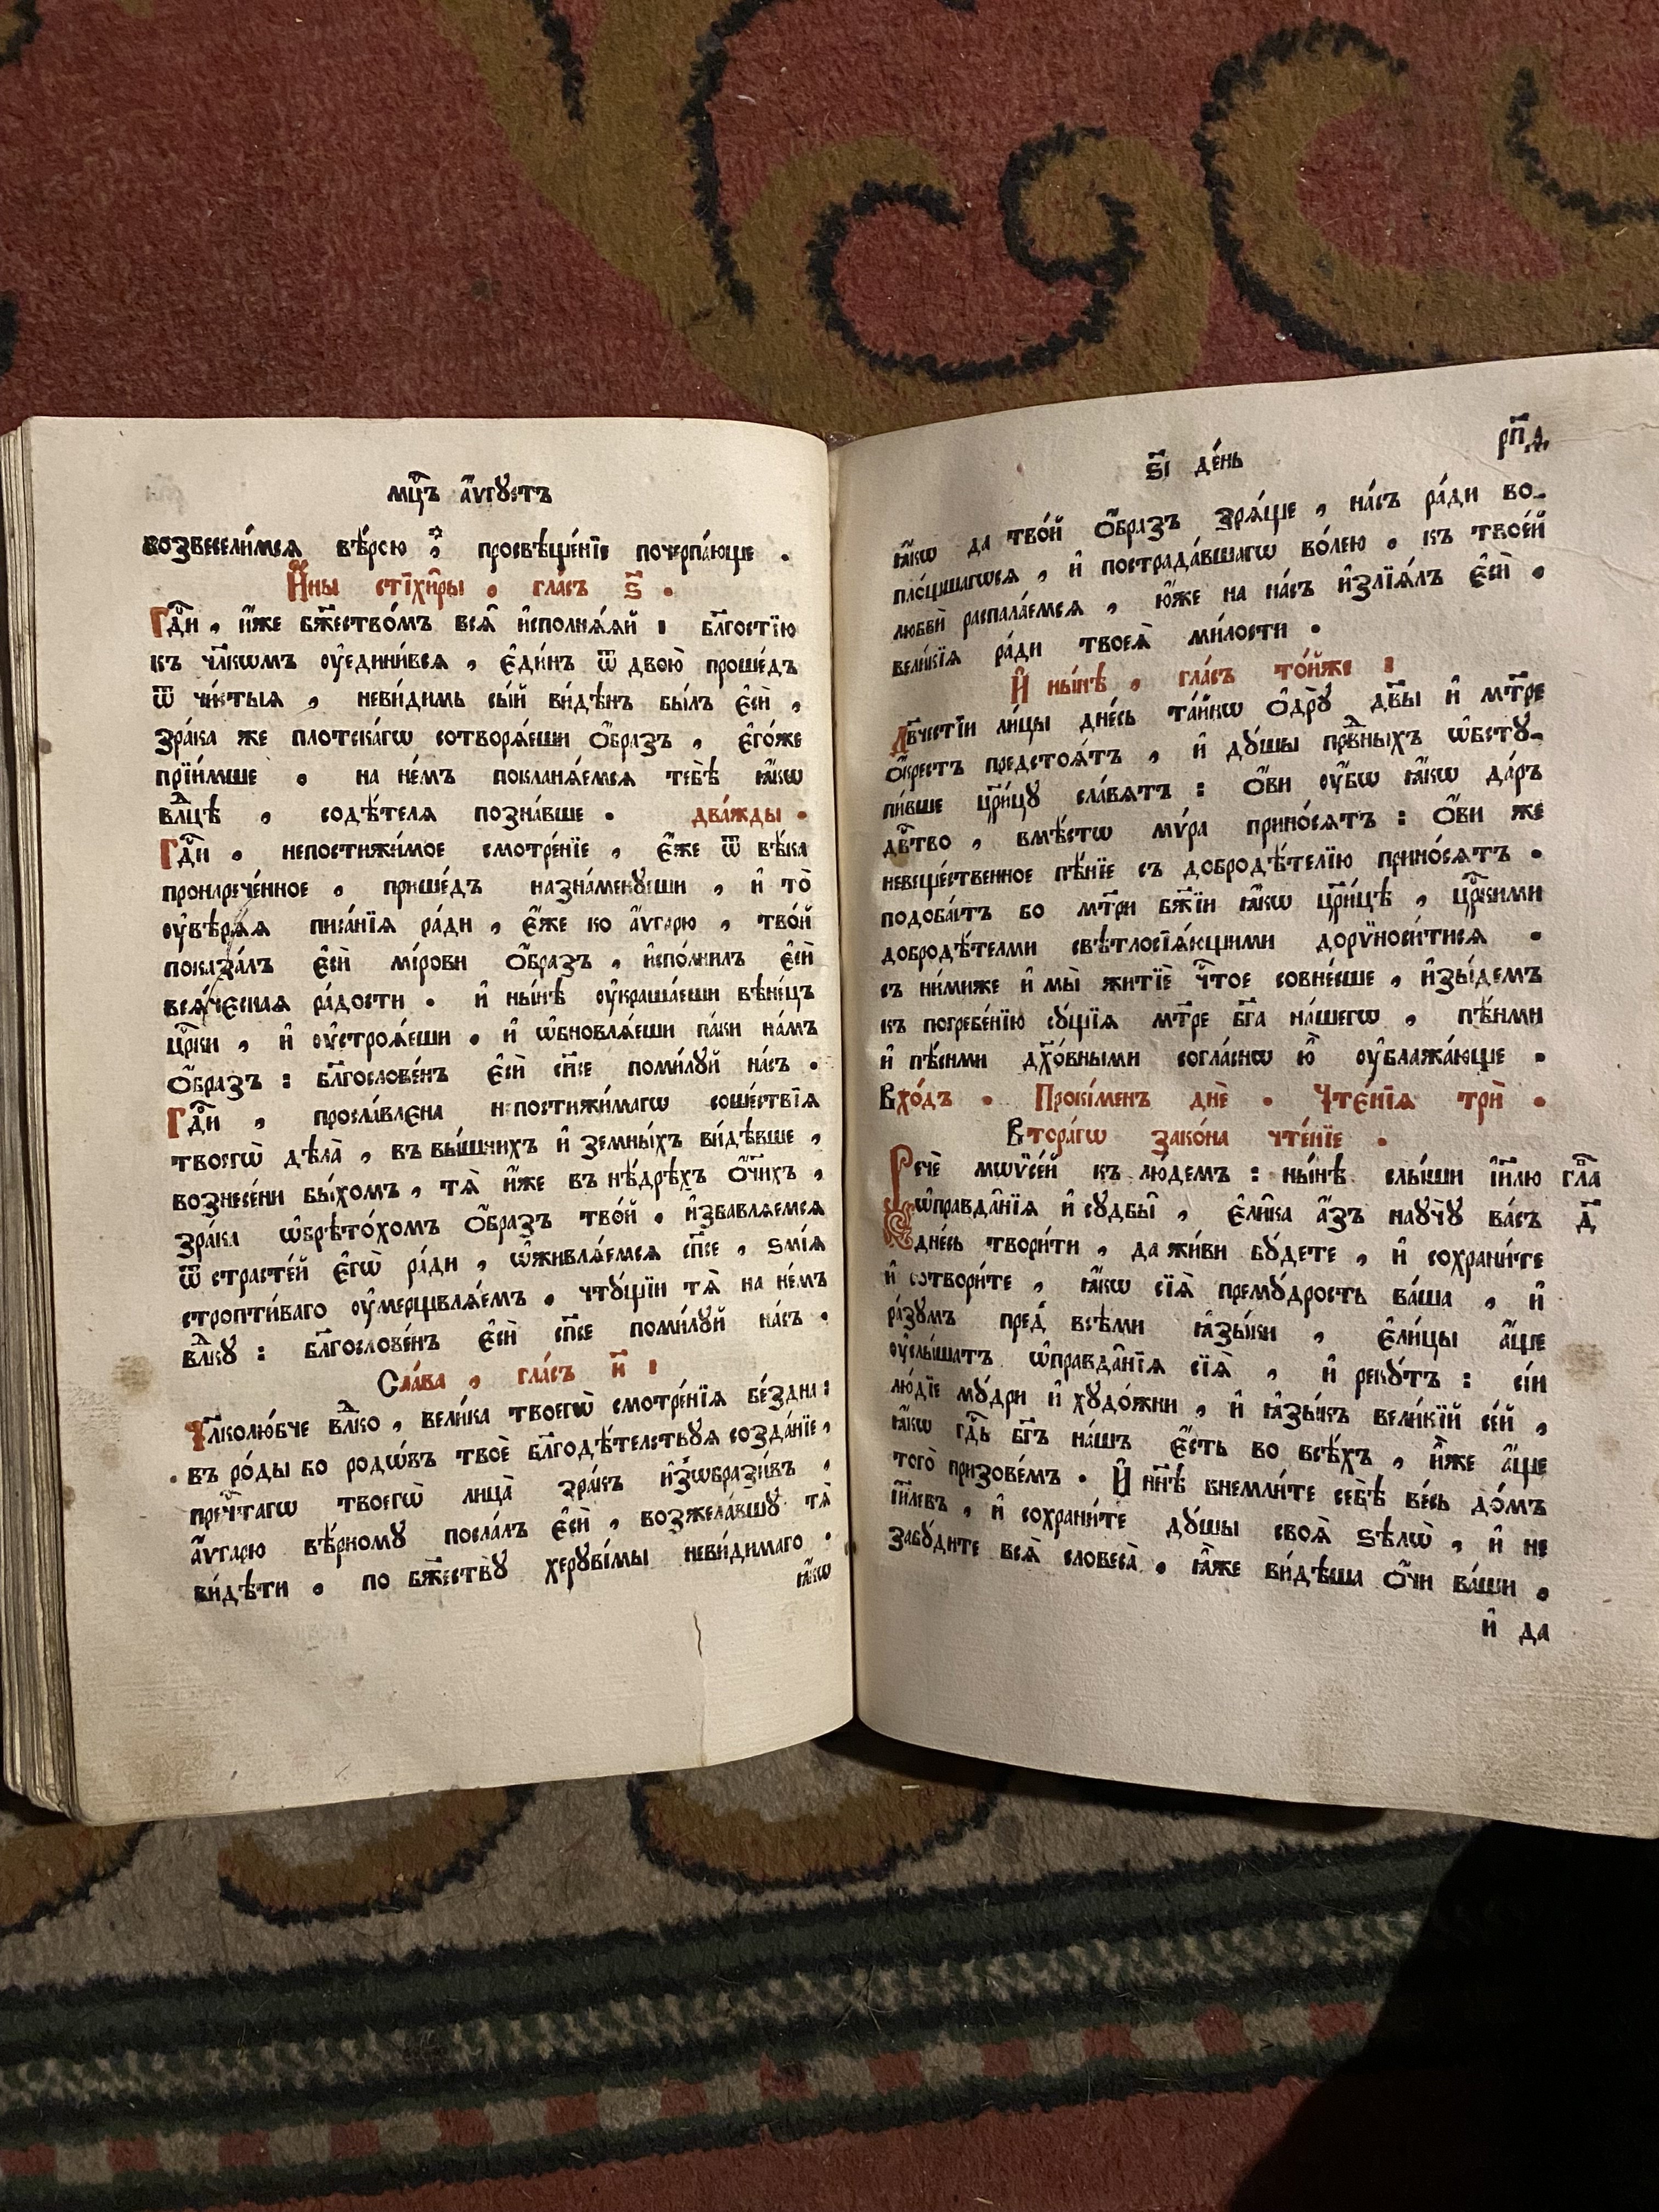 мц҃ъ а҆́ѵгꙋстъ
возвеселимсѧ вѣ́рою ⁘ просвѣще́нїе почерпа́юще .
И҆́ны стїхи̑ры . гла́съ ѕ҃ .
Гдⷭ҇и , и҆́же бж҃ество́мъ всѧ̑ и҆сполнѧ́ѧй : бл҃гостїю
къ чл҃кѡмъ ᲂу҆едини́всѧ , є҆ди́нъ ѿ двою̀ проше́дъ
ѿ чи́стыѧ , неви́димь сы́й ви́дѣнъ бы́лъ є҆сѝ ,
зра́ка же плотска́гѡ сотворѧ́еши ѻ҆́бразъ , є҆го́же
прїи́мше . на не́мъ поклана́емсѧ тебѣ̀ ꙗ҆́кѡ
влⷣцѣ , содѣ́телѧ позна́вше . два́жды .
Гдⷭ҇и , непостижи́мое смотре́нїе , є҆́же ѿ вѣ́ка
пронарече́нное , прише́дъ назна́менꙋеши , и҆ то̀
ᲂу҆вѣрѧ́ѧ писа́нїѧ ра́ди , є҆́же ко а҆́ѵгарю , тво́й
показа́лъ є҆сѝ мі́рови ѻ҆́бразъ , и҆спо́лнилъ є҆сѝ
всѧ́ческаѧ ра́дости . и҆ ны́нѣ ᲂу҆краша́еши вѣне́цъ
цр҃кви , и҆ ᲂу҆строѧ́еши . и҆ ѡ҆бновлѧ́еши па́ки на́мъ
ѻ҆́бразъ : бл҃гослове́нъ є҆сѝ сп҃се поми́лꙋй на́съ .
Гдⷭ҇и , просла́влена непостижи́магѡ соше́ствїѧ
твоегѡ̀ дѣла̀ , въ вы́шнихъ и҆ земны́хъ ви́дѣвше ,
вознесе́ни бы́хомъ , тѧ̀ и҆́же въ нѣ́дрѣхъ ѻ҆́ч҃ихъ ,
зра́ка ѡ҆брѣто́хомъ ѻ҆́бразъ тво́й . и҆збавлѧ́емсѧ
ѿ страсте́й є҆гѡ̀ ра́ди , ѡ҆живлѧ́емсѧ сп҃се , ѕмі́ѧ
стропти́ваго ᲂу҆мерщвлѧ́емъ . чтꙋ́щїи тѧ̀ на не́мъ
влⷣкꙋ : бл҃гослове́нъ є҆сѝ сп҃се поми́лꙋй на́съ .
Сла́ва , гла́съ и҃ :
Чл҃колю́бче влⷣко , вели́ка твоегѡ̀ смотре́нїѧ бе́здна :
въ ро́ды бо родѡ́въ твоѐ бл҃годѣ́тельствꙋѧ созда́нїе ,
пречⷭ҇тагѡ твоегѡ̀ лица̀ зра́къ и҆з̾ѡбрази́въ ,
а҆́ѵгарю вѣ́рномꙋ посла́лъ є҆сѝ , возжела́вшꙋ тѧ̀
ви́дѣти . по бж҃ествꙋ̀ херꙋві́мы неви́димаго .
ꙗ҆́кѡ
ѕ҃і де́нь
рп҃д
ꙗ҆́кѡ да тво́й ѻ҆́бразъ зрѧ́ще , на́съ ра́ди во-
пло́щшагѡсѧ , и҆ пострада́вшагѡ во́лею . къ твое́й
любвѝ распала́емсѧ , ю҆́же на на́съ и҆злїѧ́лъ є҆сѝ ,
вели́кїѧ ра́ди твоеѧ̀ ми́лости .
И҆ ны́нѣ , гла́съ то́йже :
Дв҃честїи ли́цы дне́сь та́йнѡ ѻ҆дрꙋ̀ дв҃ы и҆ мт҃ре
ѻ҆́крестъ предстоѧ́тъ , и҆ дꙋ́шы првⷣныхъ ѡ҆бстꙋ-
пи́вше цр҃и́цꙋ сла́вѧтъ : ѻ҆́ви ᲂу҆́бѡ ꙗ҆́кѡ да́ръ
дв҃ство , вмѣ́стѡ мѵ́ра прино́сѧтъ : ѻ҆́ви же
невеще́ственное пѣ́нїе съ добродѣ́телїю прино́сѧтъ .
подоба́етъ бо мт҃ри бж҃їи ꙗ҆́кѡ цр҃и́цѣ , црⷭ҇кими
добродѣ́телми свѣтлосїѧ́ющими дорѷноси́тисѧ .
съ ни́миже и҆ мы̀ житїѐ чⷭ҇тое совне́сше , и҆зы́демъ
къ погребе́нїю сꙋ́щїѧ мт҃ре бг҃а на́шегѡ , пѣ́нми
и҆ пѣ́сньми дꙋхо́вными согла́снѡ ю҆̀ ᲂу҆блажа́юще .
Вхо́дъ . Проки́менъ днѐ . Чте́нїѧ трѝ .
Втора́гѡ зако́на чте́нїе .
Речѐ мѡѷсе́й къ лю́демъ : ны́нѣ слы́ши і҆и҃лю гла
ѡ҆правда̑нїѧ и҆ сꙋдбы̑ , є҆ли̑ка а҆́зъ наꙋчꙋ̀ ва́съ д҃
дне́сь твори́ти , да жи́ви бꙋ́дете , и҆ сохрани́те
и҆ сотвори́те , ꙗ҆́кѡ сїѧ̀ премꙋ́дрость ва́ша , и҆
ра́зꙋмъ пред̾ всѣ́ми ꙗ҆зы́ки , є҆ли́цы а҆́ще
ᲂу҆слы́шатъ ѡ҆правда̑нїѧ сїѧ̀ , и҆ рекꙋ́тъ : сі́и
лю́дїе мꙋ́дри и҆ хꙋдо́жни , и҆ ꙗ҆зы́къ вели́кїй се́й ,
ꙗ҆́кѡ гдⷭ҇ь бг҃ъ на́шъ є҆́сть во всѣ́хъ , и҆́хже а҆́ще
того̀ призове́мъ . И҆ нн҃ѣ внемли́те себѣ̀ ве́сь до́мъ
і҆и҃левъ , и҆ сохрани́те дꙋ́шы своѧ̑ ѕѣлѡ̀ , и҆ не
забꙋ́дите всѧ̑ словеса̀ . ꙗ҆̀же ви́дѣша ѻ҆́чи ва́ши .
и҆ да